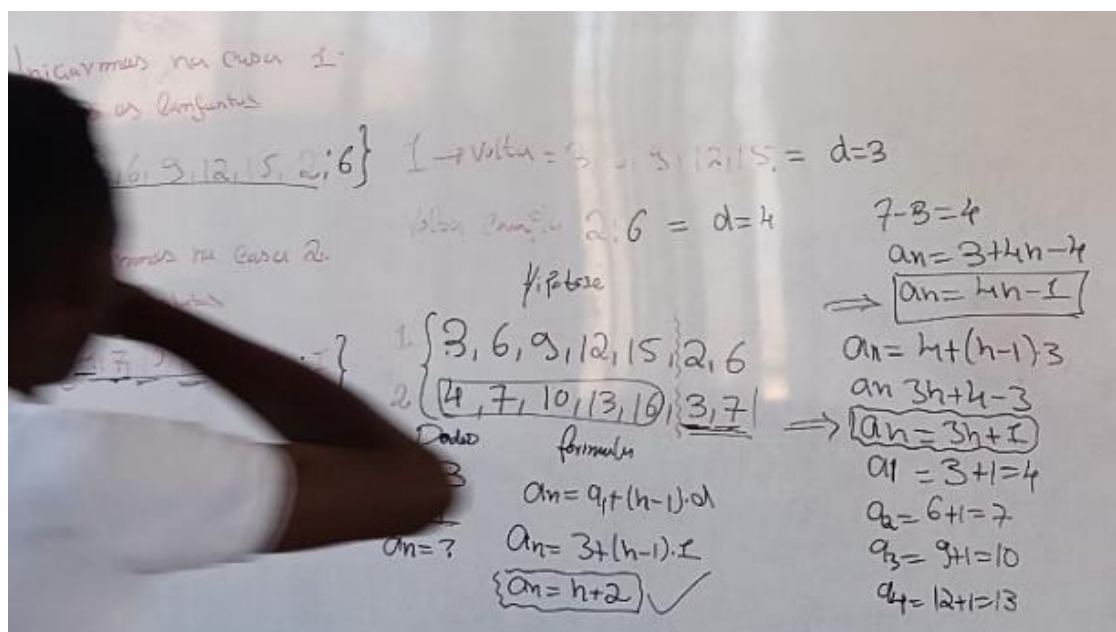 Iniciarmos na casa 1.
os
6, 9, 12, 15, 2; 6}
1 → volta = 3, 9, 12, 15, = d=3
volta 2; 6 = d=4
na casa 2.
7
Hipotese
1 {3, 6, 9, 12, 15, 2, 6
2 {4, 7, 10, 13, 16, 3, 7
Dados
3
an = ?
formula
an = a1 + (n-1).d
an = 3 + (n-1).1
an = n+2
7-3=4
an = 3+4n-4
⇒ an = 4n-1
an = 4+(n-1)3
an 3n+4-3
⇒ an = 3n+1
a1 = 3+1=4
a2 = 6+1=7
a3 = 9+1=10
a4 = 12+1=13